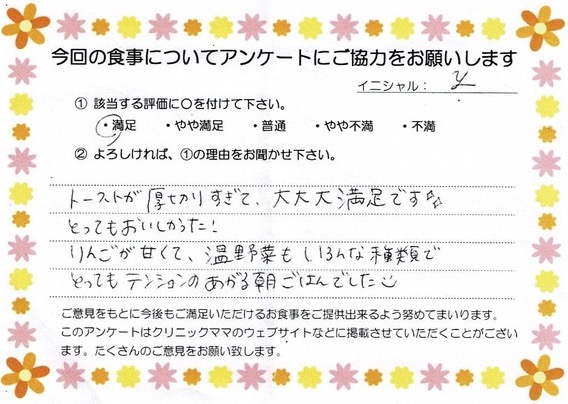 今回の食事についてアンケートにご協力をお願いします
イニシャル： y
① 該当する評価に○を付けて下さい。
・満足 ・やや満足 ・普通 ・やや不満 ・不満
② よろしければ、①の理由をお聞かせ下さい。
トーストが厚切りすぎて、大大大満足です
とってもおいしかった！
りんごが甘くて、温野菜もいろんな種類で
とってもテンションのあがる朝ごはんでした
ご意見をもとに今後もご満足いただけるお食事をご提供出来るよう努めてまいります。
このアンケートはクリニックママのウェブサイトなどに掲載させていただくことがござい
ます。たくさんのご意見をお願い致します。